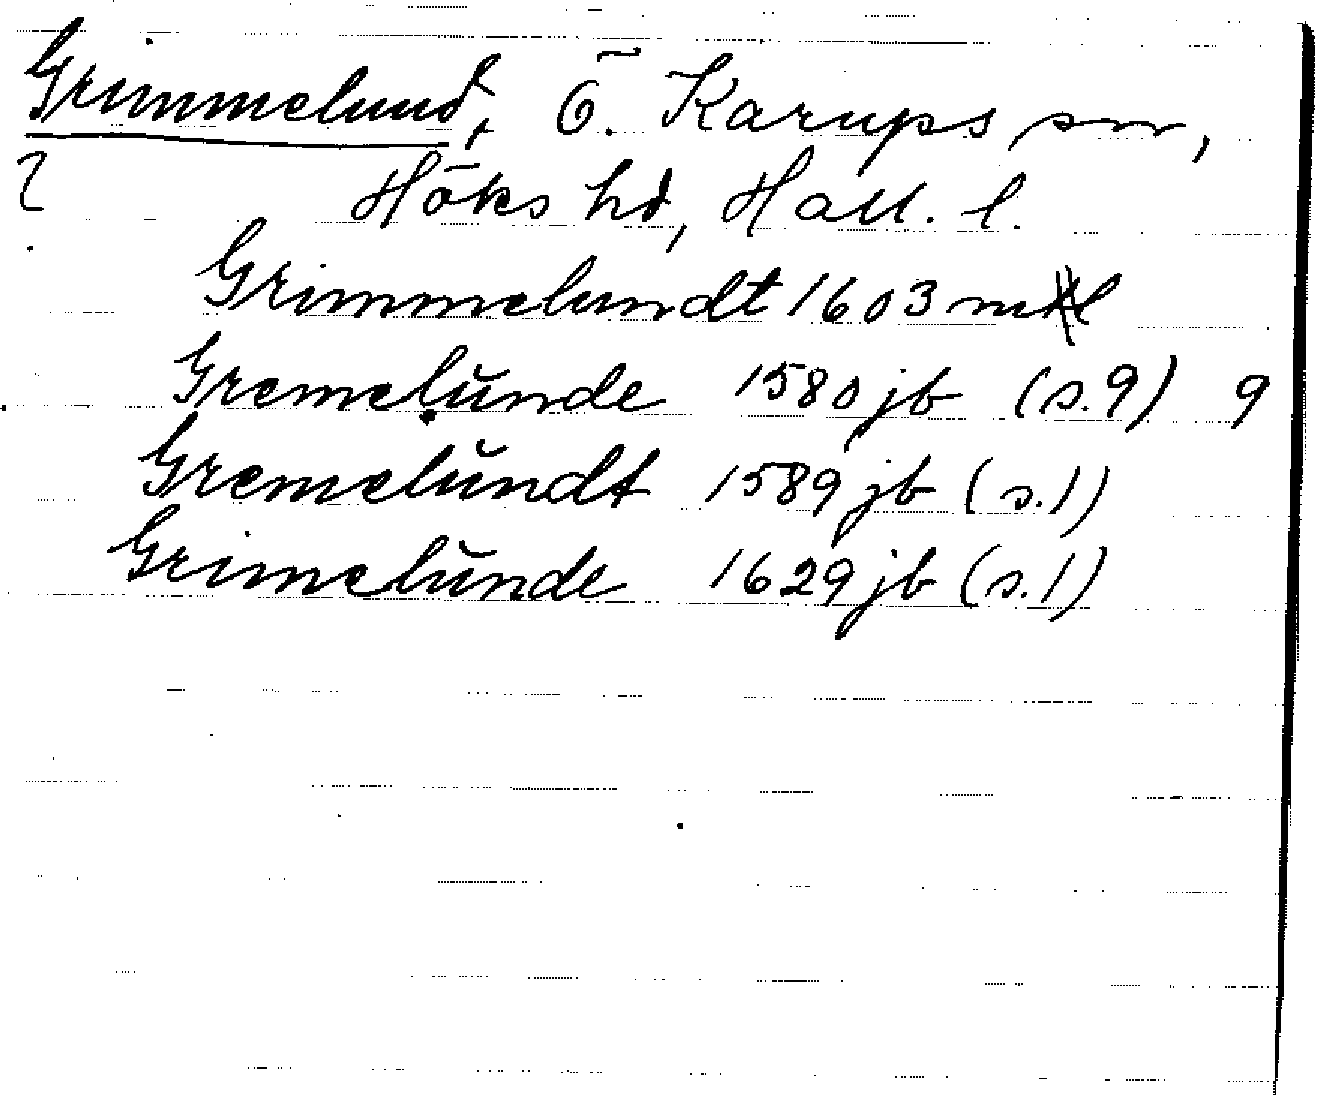 Grimmelund, Ö. Karups sn,
Höks hd, Hall. l.
Grimmelundt 1603 mtl
Gremelŭnde 1580 jb (s. 9) 9
Gremelŭndt 1589 jb (s. 1)
Grimelŭnde 1629 jb (s. 1)